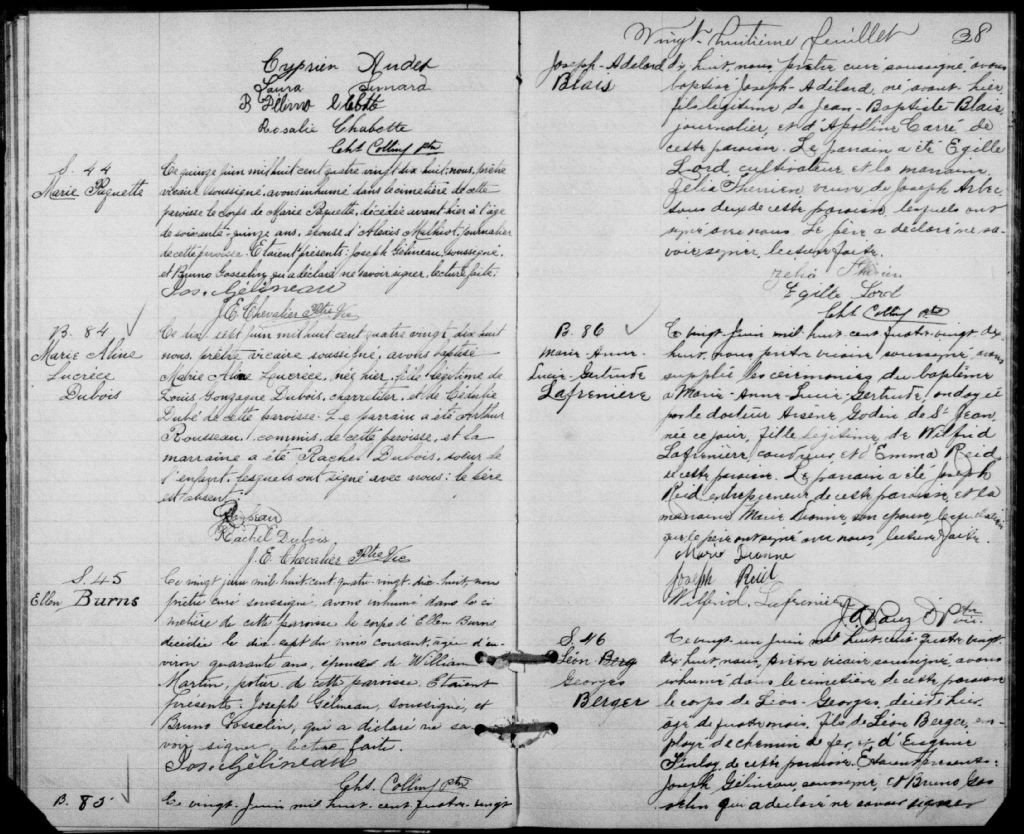 Cyprien Audet
Laura Simard
Rosalie Chabotte
Cht Collin Ptre
S. 44
Marie Paquette
Ce quinze juin mil huit cent quatre vingt dix huit, nous, prêtre
vicaire soussigné, avons inhumé dans le cimetière de cette
paroisse le corps de Marie Paquette, décédée avant hier à l'âge
de soixante-quinze ans, épouse d'Alexis Mathiot, journalier
de cette paroisse. Étaient présents: Joseph Gélineau, soussigné,
et Bruno Gosselin, qui a déclaré ne savoir signer, lecture faite.
Jos. Gélineau
J. E. Chevalier Ptre Vic
B. 84
Marie Aline
Lucrèce
Dubois
Ce dix sept juin mil huit cent quatre vingt dix huit
nous, prêtre vicaire soussigné, avons baptisé
Marie Aline Lucrèce, née hier, fille légitime de
Louis Gonzague Dubois, charretier, et de Cédulie
Dubé de cette paroisse. Le parrain a été Arthur
Rousseau, commis, de cette paroisse, et la
marraine a été Rachel Dubois, soeur de
l'enfant, lesquels ont signé avec nous: le père
est absent.
Rachel Dubois
J. E. Chevalier Ptre Vic
S. 45
Ellen Burns
Ce vingt juin mil huit cent quatre-vingt-dix-huit, nous
prêtre curé soussigné, avons inhumé dans le ci
metière de cette paroisse le corps d'Ellen Burns
décédée le dix-sept du mois courant, âgée d'en
viron quarante ans, épouse de William
Martin, potier, de cette paroisse. Étaient
présents: Joseph Gélineau, soussigné, et
Bruno Gosselin, qui a déclaré ne sa
voir signer, lecture faite.
Jos. Gélineau
Cht. Collin Ptre
B. 85
Ce vingt Juin mil huit cent quatre vingt
Vingt-huitième feuillet 28
Joseph-Adélard
Blais
dix huit, nous, prêtre curé soussigné, avons
baptisé Joseph-Adélard, né avant hier,
fils légitime de Jean-Baptiste Blais,
journalier, et d'Apolline Carré de
cette paroisse. Le parrain a été Egille
Lord, cultivateur, et la marraine
Zélia Therrien veuve de Joseph
tous deux de cette paroisse, lesquels ont
signé avec nous. Le père a déclaré ne sa-
voir signer, lecture faite.
Zélia Therrien
Egille Lord
Cht Collin Ptre
B. 86
Marie-Anne-
Lucie-Gertrude
Lafrenière
Ce vingt Juin mil huit cent quatre-vingt dix
huit, nous prêtre vicaire soussigné, avons
suppléé les cérémonies du baptême
à Marie-Anne-Lucie-Gertrude, ondoyée
par le docteur Arsène Godin de St Jean
née ce jour, fille légitime de Wilfrid
Lafrenière couvreur et d'Emma Reid
de cette paroisse. Le parrain a été Joseph
Reid entrepreneur de cette paroisse et la
marraine Marie Dionne, son épouse, lesquels ainsi
que le père ont signé avec nous, lecture faite.
Marie Dionne
Joseph Reid
Wilfrid Lafrenière
S. 46
Léon Berg
Georges
Berger
Ce vingt un Juin mil huit cent quatre vingt
dix huit, nous, prêtre vicaire soussigné, avons
inhumé dans le cimetière de cette paroisse
le corps de Léon-Georges, décédé hier,
âgé de quatre mois, fils de Léon Berger, em-
ployé de chemin de fer, et d'Eugénie
Finlay de cette paroisse. Étaient présents:
Joseph Gélineau soussigné et Bruno Gos
selin qui a déclaré ne savoir signer